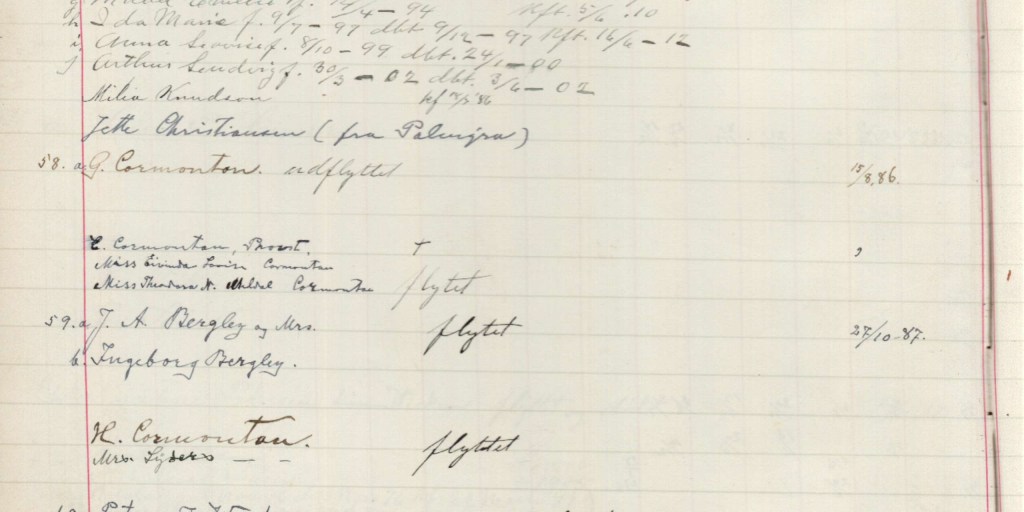 h, Ida Marie f. 9/7 - 97 dbt 9/12 - 97 Kft. 16/6 - 12
i, Anna Lovise f. 8/10 - 99 dbt. 24/1 - 00
j, Arthur f. 30/3 - 02 dbt. 3/6 - 02
Milia Knudson
Jette Christiansen (fra Palmyra)
58. a, G. Cormontan. udflyttet 15/8.86.
C. Cormontan, Provst. †
Miss Lovise Cormontan
Miss Theodora N. Cormontan flytet
59. a, J. A. Bergley og Mrs. flytet 27/10-87.
b, Ingeborg Bergley.
H. Cormontan. flyttet
Mrs. — —